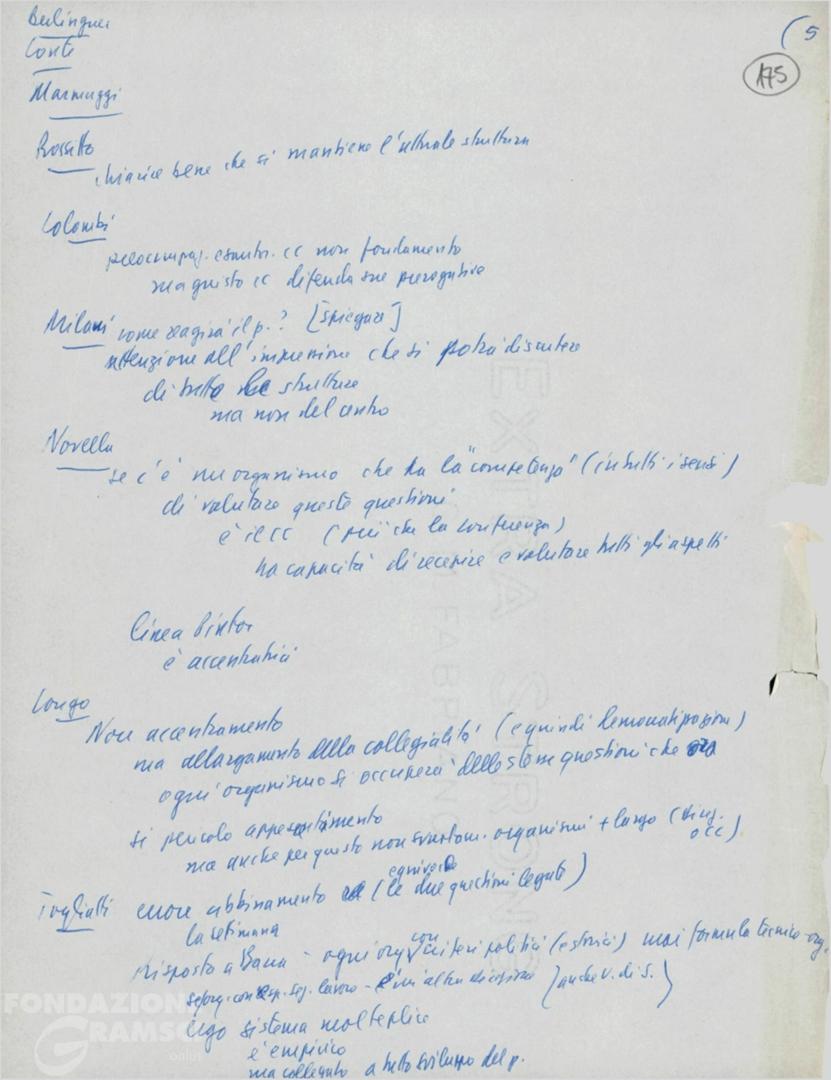 (5
175
Berlinguer
Conte
Marmuggi
Rossitto
chiarire bene che si mantiene l'attuale struttura
Colombi
preoccupaz. esautor. CC non fondamento
ma giusto CC difenda sue prerogative
Milani come reagirà il p.? [spiegare]
attenzione all'impressione che si potrà discutere
di tutte le strutture
ma non del centro
Novella
se c'è un organismo che ha la "competenza" (in tutti i sensi)
di valutare queste questioni
è il CC (più che la conferenza)
ha capacità di recepire e valutare tutti gli aspetti
linea Pintor
è accentratrice
Longo
Non accentramento
ma allargamento della collegialità (e quindi democratizzazione)
ogni organismo si occuperà delle stesse questioni che ora
si pericolo appesantimento
ma anche per questo non svuotam. organismi + largo (
occ)
equivoco
Togliatti errore abbinamento (le due questioni legate)
la settimana
Risposta a - ogni org con criteri politici (e storici) mai formula tecnico-org.
lavoro - è un'altra (anche v. di S.)
Ergo sistema molteplice
è empirico
ma collegato a tutto sviluppo del p.
EXTRA STRONG
FABRIANO
FONDAZIONE
GRAMSCI
onlus